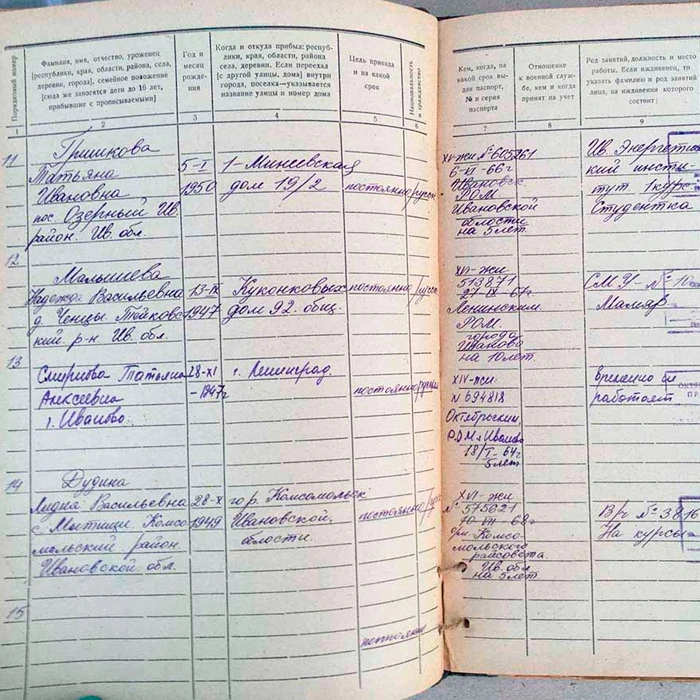 Порядковый номер
Фамилия, имя, отчество, уроженец
[республики, края, области, района, села,
деревни, города], семейное положение
[сюда же заносятся дети до 16 лет,
прибывшие с прописываемыми]
Год и
месяц
рождения
Когда и откуда прибыл: респуб-
лики, края, области, района
села, деревни. Если переехал
[с другой улицы, дома] внутри
города, поселка—указывается
название улицы и номер дома
Цель приезда
и на какой
срок
Национальность
и гражданство
Кем, когда, на
какой срок вы-
дан паспорт,
№ и серия
паспорта
Отношение
к военной служ-
бе, кем и когда
принят на учет
Род занятий, должность и место
работы. Если иждивенец, то
указать фамилию и род занятий
лица, на иждивении которого
состоит;
1
2
3
4
5
6
7
8
9
11
Гришкова
Татьяна
Ивановна
пос. Озерный Ив.
район. Ив. обл.
5-I
1950
1-Минеевская
дом 19/2
постоянно
русск
XV-жи № 605261
6-VI-66г
Ивановск.
РОМ.
Ивановской
области
на 5 лет
Ив. Энергети-
кий инсти
тут 1 курс
Студентка
12
Малышева
Надежда Васильевна
д. Ченцы. Тейковс
кий. р-н. Ив. обл.
13-IX
1947
Куконковых
дом 92. общ.
постоянно
русск
XVI-жи
513871
27-IX-67г
Ленинским.
РОМ.
города
Иваново
на 10 лет.
СМУ-№10
Маляр
13
Смирнова Татьяна
Алексеевна
г. Иваново.
28-XI
-1947г
г. Ленинград
постоянно
XIV-жи
N 694818
Октябрьским
РОМ г. Иваново
18/I-64г
5 лет
Временно не
работает
ОКТЯ
ПР
14
Дудина
Лидия Васильевна
с. Мытищи. Комсо
мольский район.
Ивановской. обл.
28-X
1949
гор. Комсомольск
Ивановской.
области.
постоянно
русск
XVI-жи
№ 575021
10-VII-68г
Комсо-
мольского
райсовета.
Ив. обл.
на 5 лет
В/ч № 3816
На курсы
15
постоянно